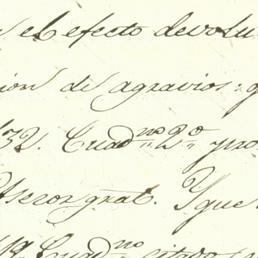 el efecto devolu
ion de agravios: q
132. Cuad.no 2.o pro
Asesor gral. Y que
Cuad.no citado